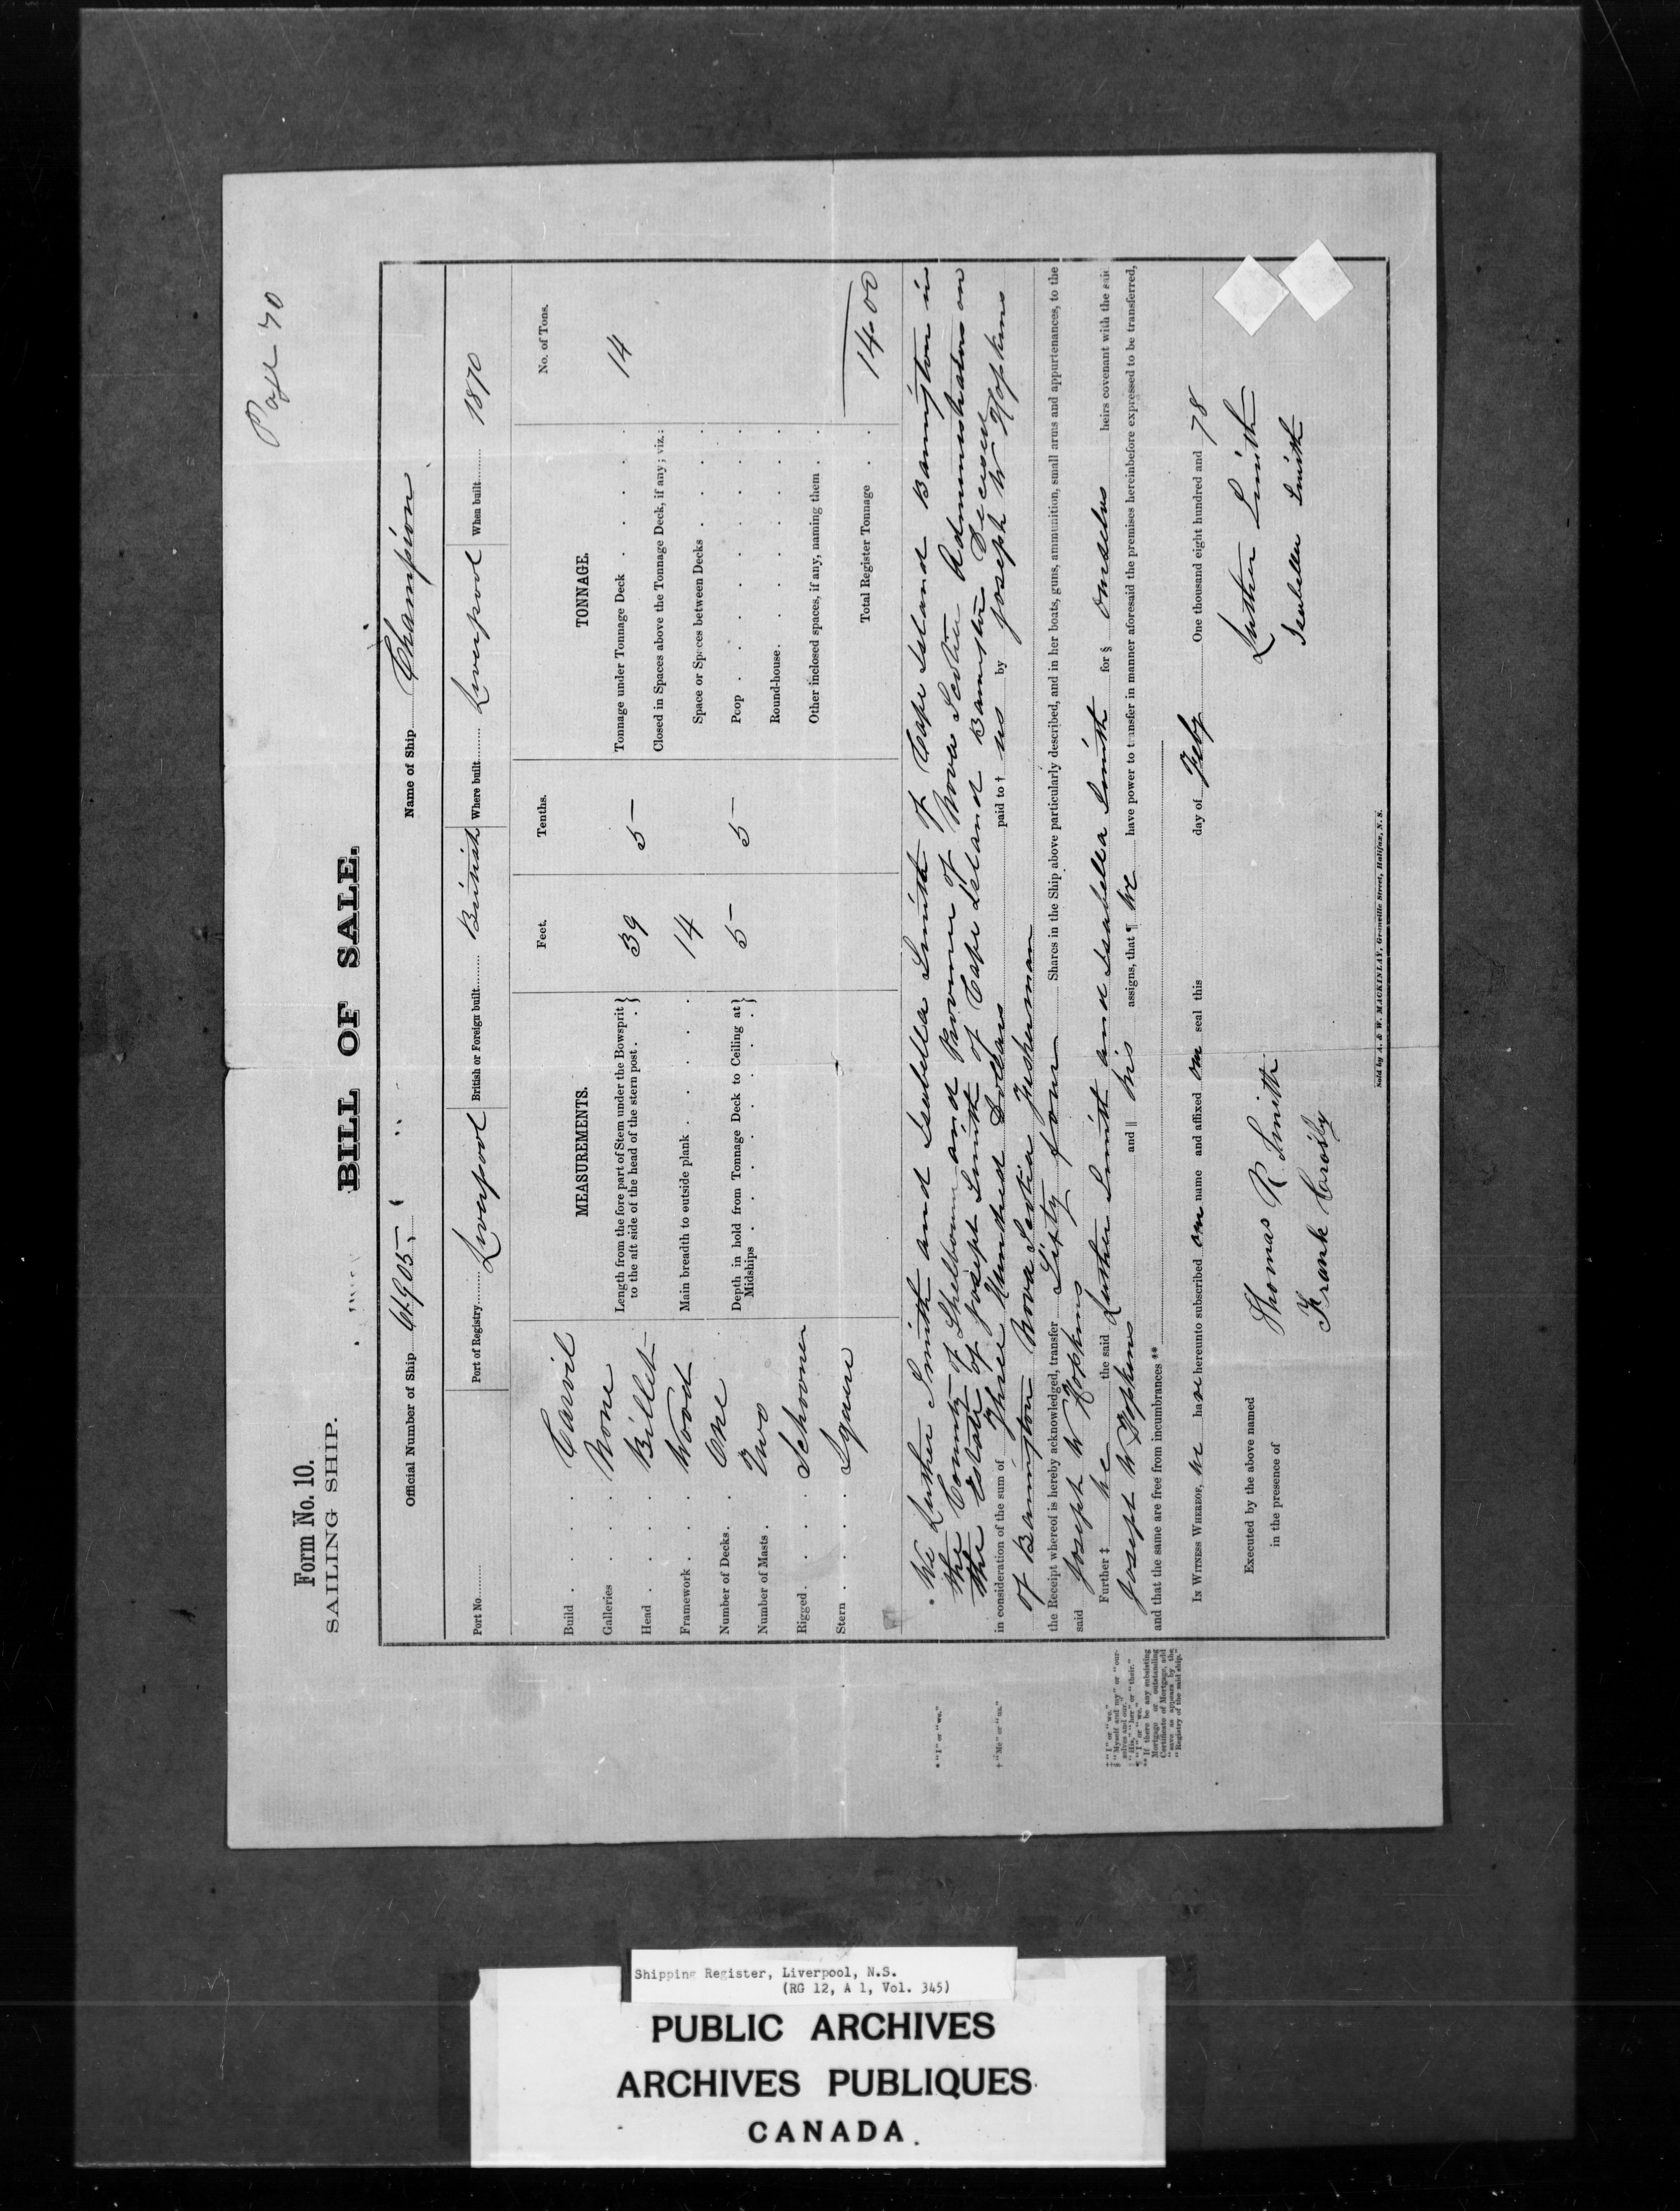 Page 70
Form No. 10.
SAILING SHIP.
BILL OF SALE.
Official Number of Ship Name of Ship Champion
Port No. Port of Registry Liverpool British or Foreign built British Where built Liverpool When built 1870
MEASUREMENTS. Feet. Tenths. TONNAGE. No. of Tons.
Build Carvil
Galleries None
Head Billet
Framework Wood
Number of Decks One
Number of Masts Two
Rigged Schooner
Stern Square
Length from the fore part of Stem under the Bowsprit
to the aft side of the head of the stern post 39 5
Main breadth to outside plank 14
Depth in hold from Tonnage Deck to Ceiling at
Midships 5 5
Tonnage under Tonnage Deck 14
Closed in Spaces above the Tonnage Deck, if any; viz.:
Space or Spaces between Decks
Poop
Round-house
Other inclosed spaces, if any, naming them
Total Register Tonnage 14.00
* We Luther Smith and Isabella Smith of Cape Island Barrington in
the County of Shelbourne and Province of Nova Scotia Administrators on
the Estate of Joseph Smith of Cape Island Barrington Deceased
in consideration of the sum of Three Hundred Dollars paid to † us by Joseph W Hopkins
of Barrington Nova Scotia Fisherman
the Receipt whereof is hereby acknowledged, transfer Sixty four Shares in the Ship above particularly described, and in her boats, guns, ammunition, small arms and appurtenances, to the
said Joseph W Hopkins
Further ‡ we the said Luther Smith and Isabella Smith for § ourselves heirs covenant with the said
Joseph W Hopkins and || his assigns, that ¶ we have power to transfer in manner aforesaid the premises hereinbefore expressed to be transferred,
and that the same are free from incumbrances **
IN WITNESS WHEREOF, we have hereunto subscribed our name and affixed our seal this day of Feby One thousand eight hundred and 78
Executed by the above named
in the presence of
Thomas R Smith
Frank Crosby
Luther Smith
Isabella Smith
* "I" or "we."
† "Me" or "us."
‡ "I" or "we."
§ "Myself and my" or "our-
selves and our."
|| "His," "her" or "their."
¶ "I" or "we."
** If there be any subsisting
Mortgage or outstanding
Certificate of Mortgage, add
"save as appears by the
"Registry of the said ship."
Sold by A. & W. MACKINLAY, Granville Street, Halifax, N.S.
Shipping Register, Liverpool, N.S.
(RG 12, A 1, Vol. 345)
PUBLIC ARCHIVES
ARCHIVES PUBLIQUES
CANADA